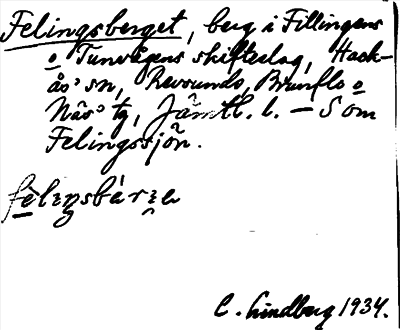 Felingsberget, berg i Fillingens
o Tunvågens skifteslag, Hack-
ås' sn, Revsunds, Brunflo o
Näs' tg, Jämtl. l. – S om
Felingssjön.
C. Lindberg 1934.